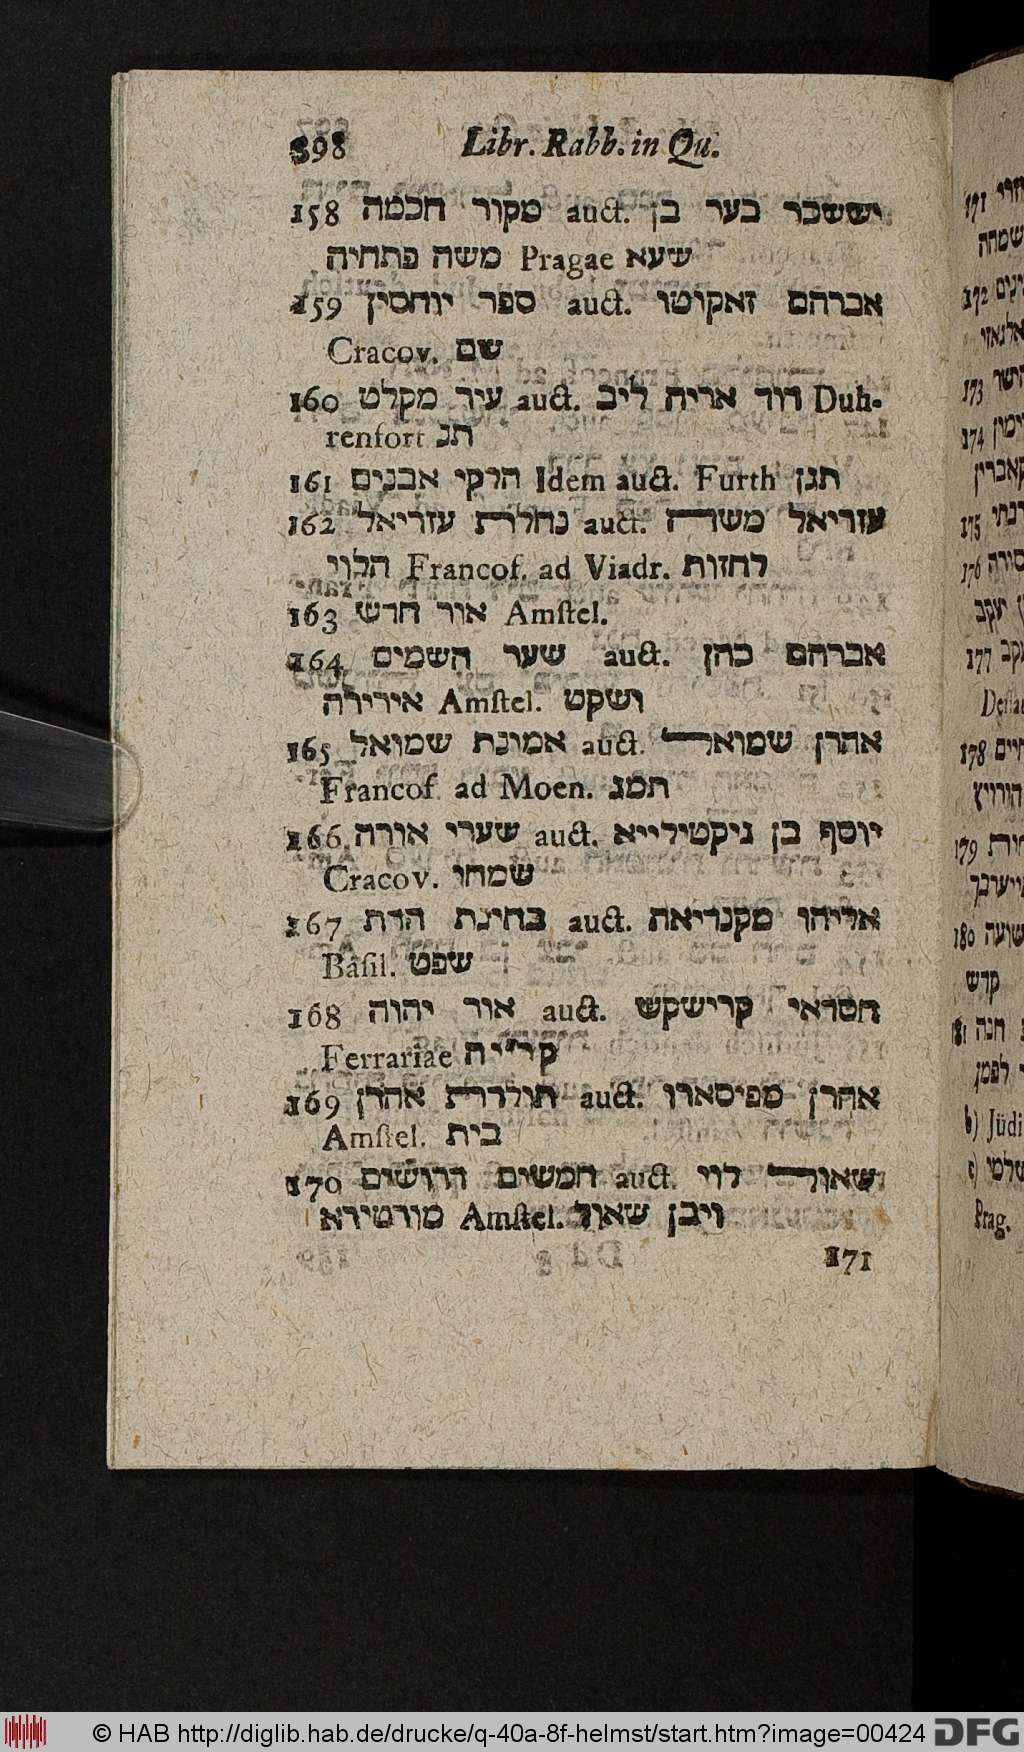 398 Libr. Rabb. in Qu.
158 מקור חכמה auct. יששכר בער בן
משה פתחיה Pragae שעא
159 ספר יוחסין auct. אברהם זאקוטו
Cracov. שם
160 עיר מקלט auct. דוד אריה ליב Duh-
renfort תנ
161 הרקי אבנים Idem auct. Furth תנן
162 נחלת עזריאל auct. עזריאל משה
הלוי Francof. ad Viadr. לחזות
163 אור חדש Amstel.
164 שער השמים auct. אברהם כהן
אירירה Amstel. ושקט
165 אמונת שמואל auct. אהרן שמואל
Francof. ad Moen. תמג
166 שערי אורה auct. יוסף בן ניקטילייא
Cracov. שמחו
167 בחינת הדת auct. אליהו מקנדיאה
Basil. שפט
168 אור יהוה auct. חסדאי קרישקש
Ferrariae קר״יה
169 תולדת אהרן auct. אהרן מפיסארו
Amstel. בית
170 חמשים דרושים auct. שאול לוי
מורטירא Amstel. ויבן שאול
171
171
172
173
174
175
176
יעקב
177
178
הורויץ
179
180
קדש
181 חנה
b) Jüdi
c)
Prag.
© HAB http://diglib.hab.de/drucke/q-40a-8f-helmst/start.htm?image=00424 DFG